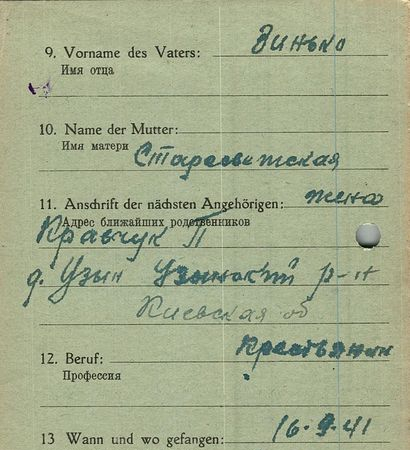 9. Vorname des Vaters: Зинько
Имя отца
10. Name der Mutter:
Имя матери Старсвитская
11. Anschrift der nächsten Angehörigen: жена
Адрес ближайших родственников
Кравчук П
д. Узын Узинский р-н
Киевская об
12. Beruf: крестьянин
Профессия
16.9.41
13 Wann und wo gefangen: